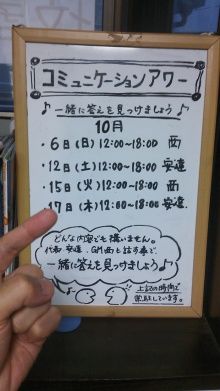 コミュニケーションアワー
♪一緒に答えを見つけましょう♪
10月
・6日(日)12:00~18:00 西
・12日(土)12:00~18:00 安達
・15日(火)12:00~18:00 西
17日(木)12:00~18:00 安達
どんな内容でも構いません。
代表 安達、GM西と話す事で、
一緒に答えを見つけましょう♪
上記の時間で
しています。